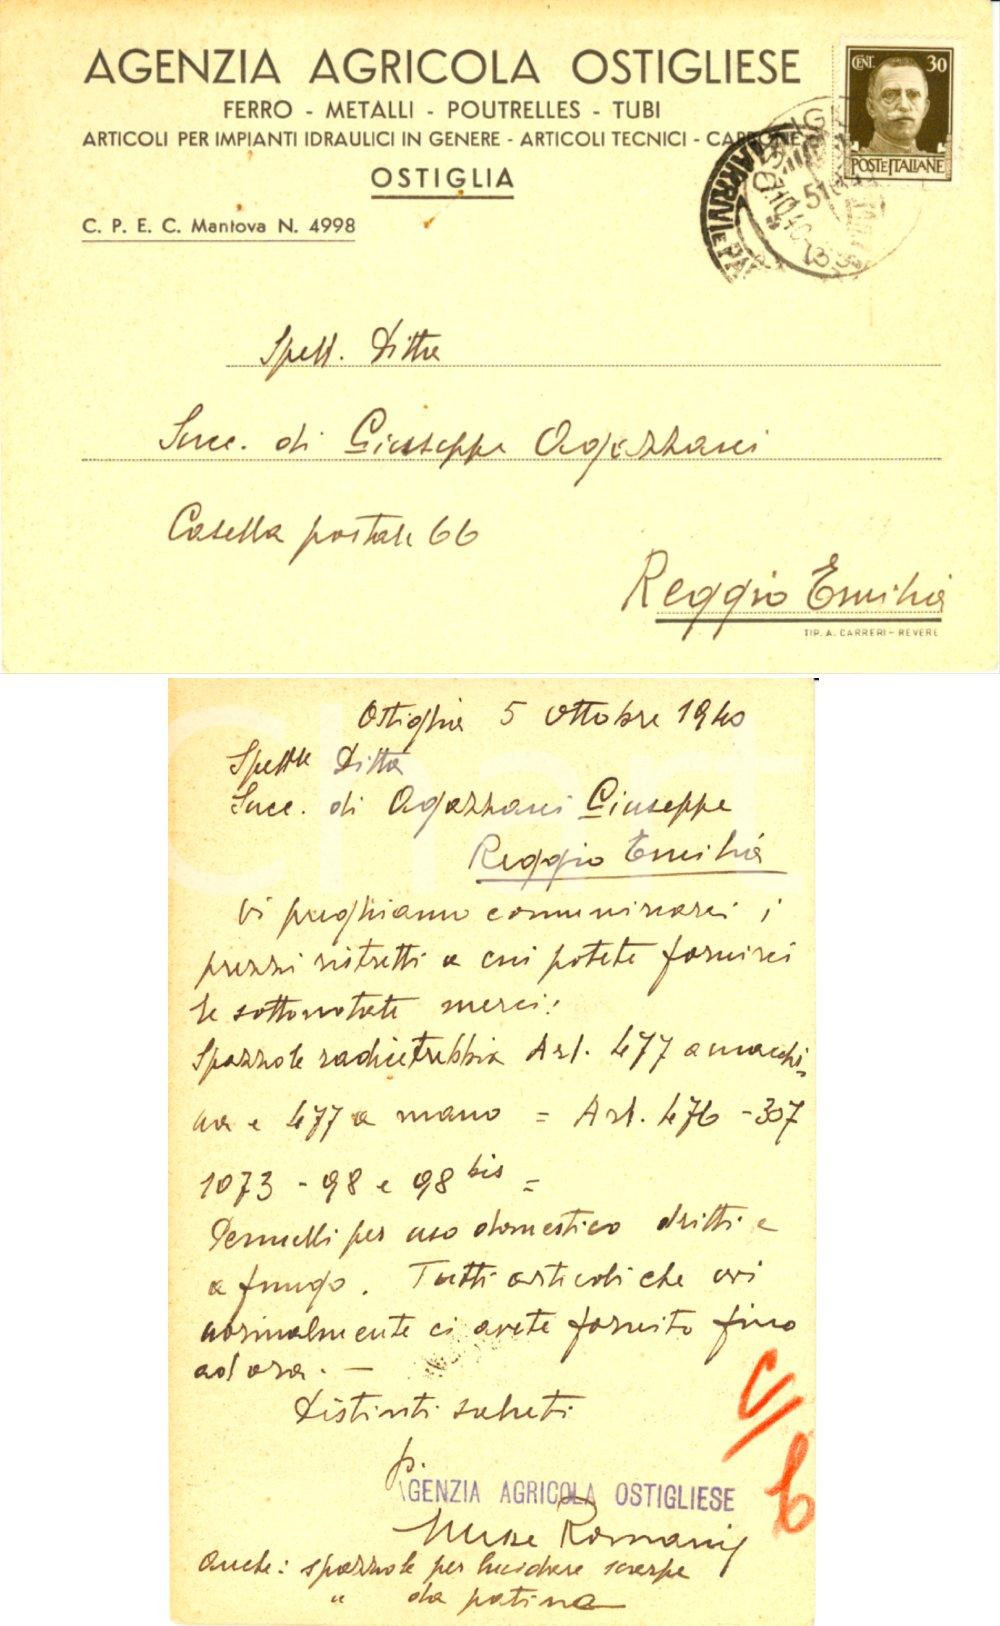 AGENZIA AGRICOLA OSTIGLIESE
FERRO - METALLI - POUTRELLES - TUBI
ARTICOLI PER IMPIANTI IDRAULICI IN GENERE - ARTICOLI TECNICI - CARBONE
OSTIGLIA
C. P. E. C. Mantova N. 4998
CENT. 30
POSTE ITALIANE
ARRIVI E PA
Spett. Ditta
Succ. di Giuseppe Agazzani
Casella postale 66
Reggio Emilia
TIP. A. CARRERI - REVERE
Ostiglia 5 ottobre 1940
Spettle Ditta
Succ. di Agazzani Giuseppe
Reggio Emilia
Vi preghiamo comunicarci i
prezzi ristretti a cui potete fornirci
le sottonotate merci:
Spazzole radicetrebbia Art. 477 a macchi-
na e 477 a mano = Art. 476 - 307
1073 - 98 e 98 bis =
Pennelli per uso domestico dritti e
a fungo. Tutti articoli che voi
normalmente ci avete fornito fino
ad ora. -
Distinti saluti
p. AGENZIA AGRICOLA OSTIGLIESE
Romani
Anche: spazzole per lucidare scarpe
" da patina